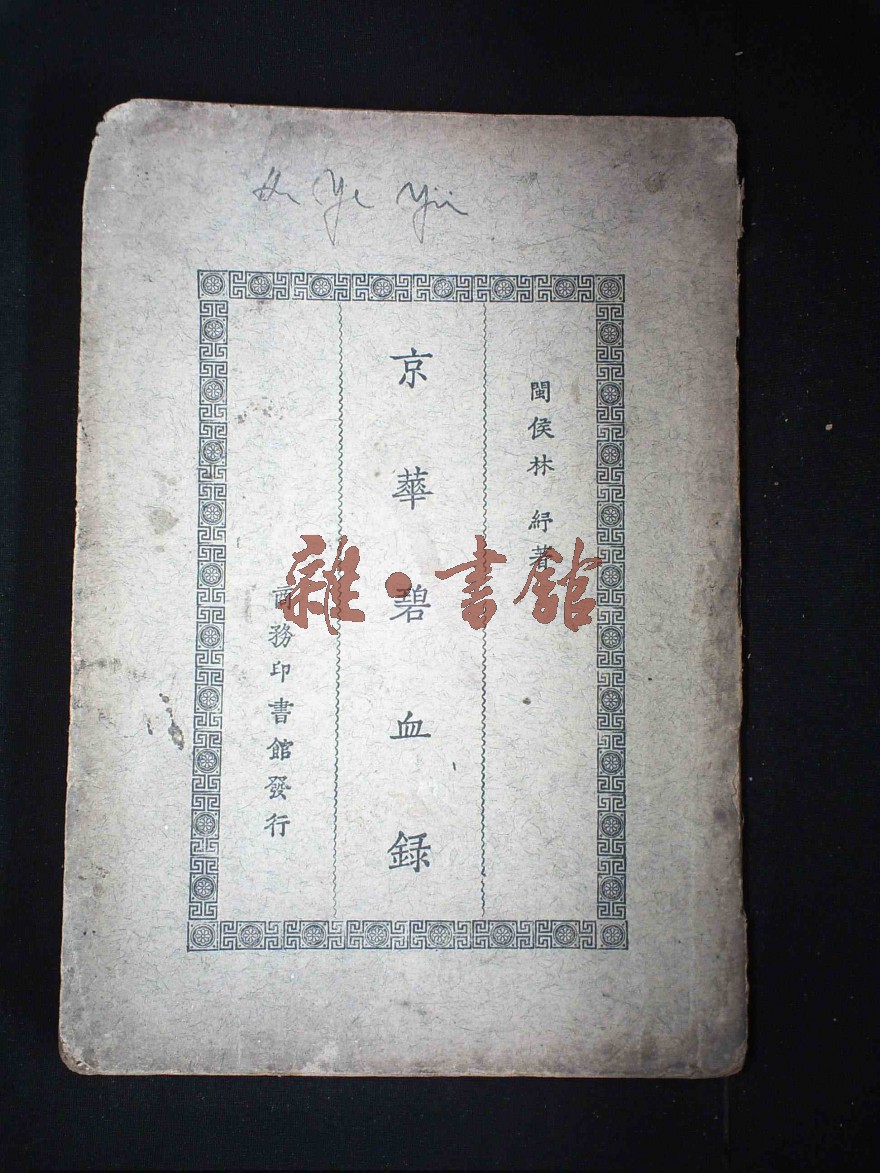 閩侯林 紓著
京華碧血録
商務印書館發行
雜·書館